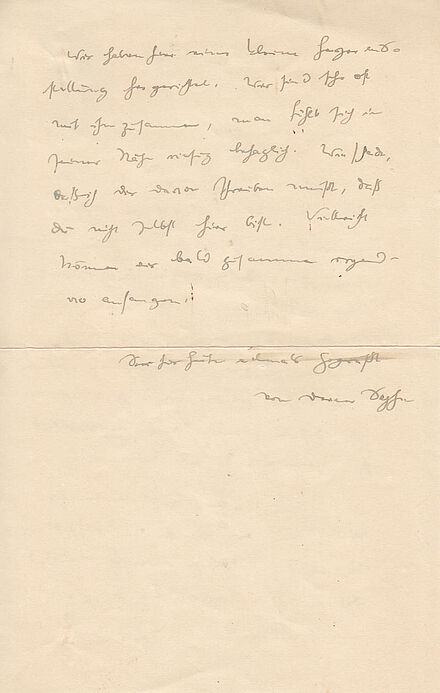 Wir haben hier eine kleine
stellung hergerichtet. Wir sind sehr oft
mit ihm zusammen, man fühlt sich in
seiner Nähe richtig behaglich. Wie schade,
daß ich dir davon schreiben muß, daß
du nicht selbst hier bist. Vielleicht
können wir bald zusammen irgend-
wo anfangen.
Sei für heute
von deiner